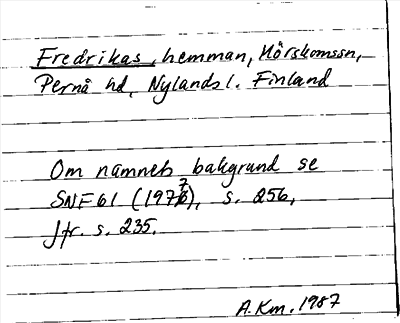 Fredrikas, hemman, Mörskomssn,
Pernå hd, Nylands l. Finland
Om namnets bakgrund se
SNF 61 (1977), s. 256,
Jfr. s. 235.
A.Km. 1987